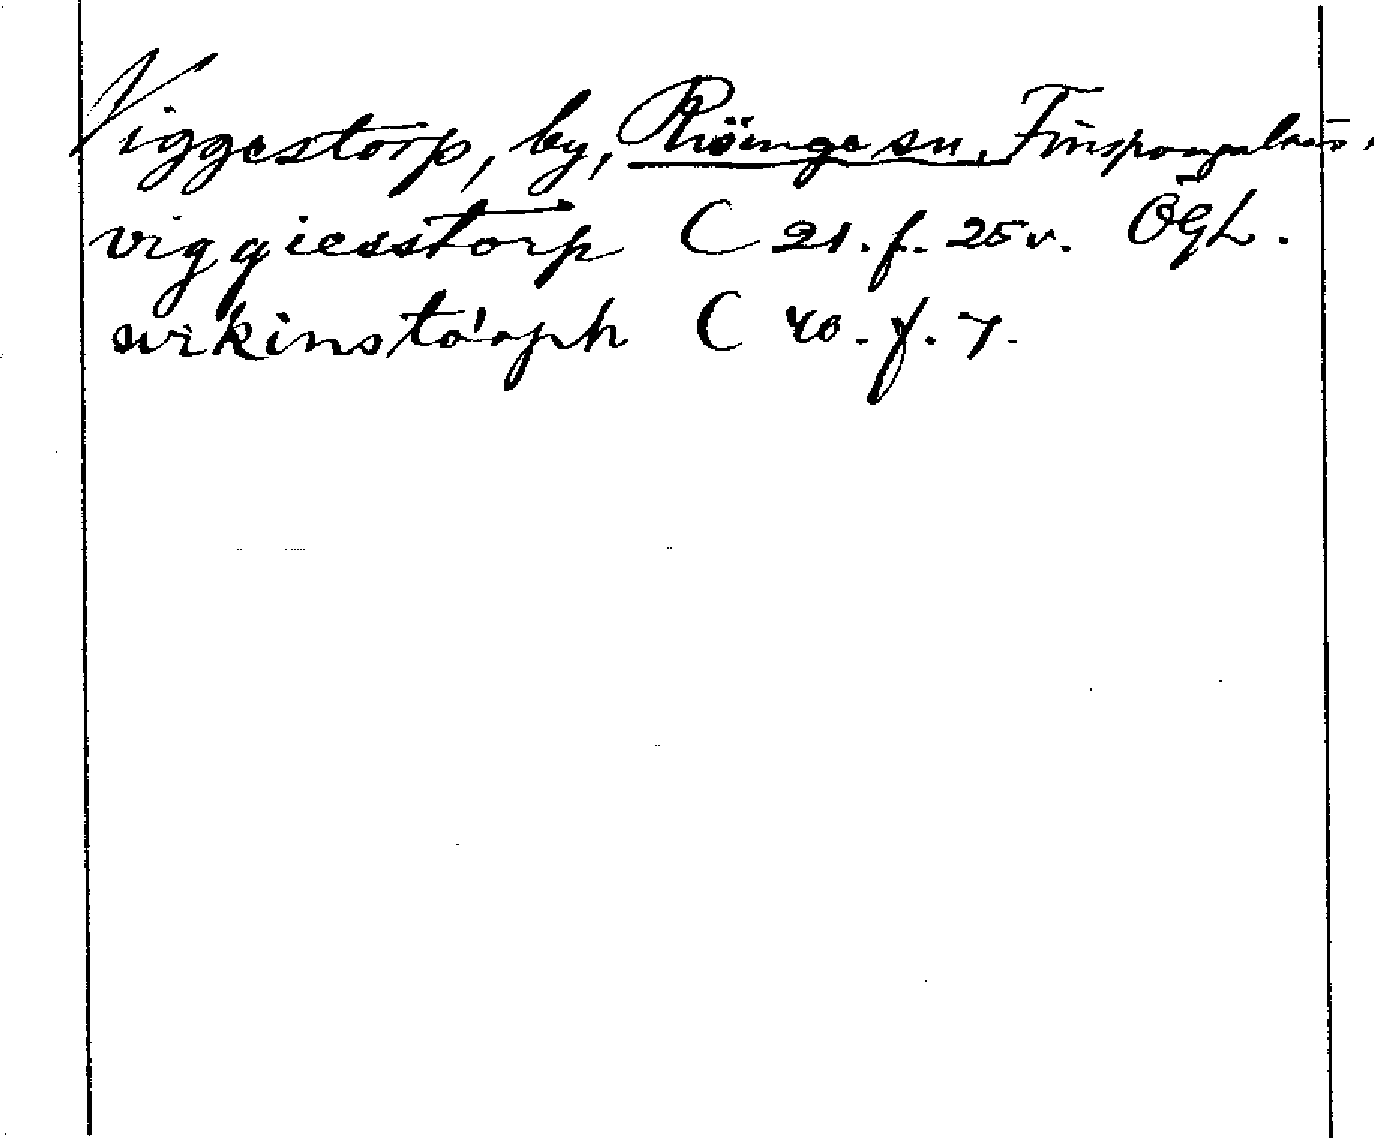 Viggestorp, by, Risinge sn, Finspångalän,
viggiesstorp C 21. f. 25 v. ÖgL.
wikinstoʼrph C 40. f. 7.